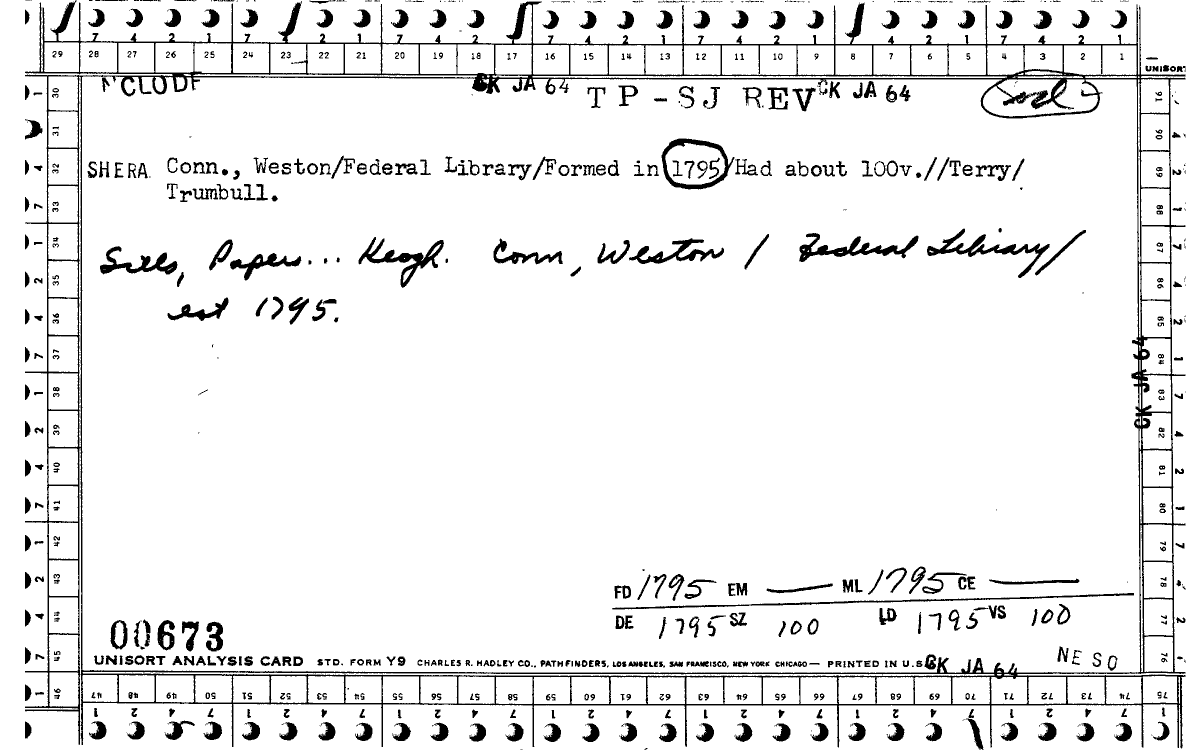 7 4 2 1 7 4 2 1 7 4 2 1 7 4 2 1 7 4 2 1 7 4 2 1 7 4 2 1
29 28 27 26 25 24 23 22 21 20 19 18 17 16 15 14 13 12 11 10 9 8 7 6 5 4 3 2 1
UNISORT
CK JA 64 TP-SJ REV CK JA 64
SHERA Conn., Weston/Federal Library/Formed in 1795/Had about 100v.//Terry/
Trumbull.
Sills, Papers... Keogh. Conn, Weston / Federal Library/
est 1795.
CK JA 64
FD 1795 EM — ML 1795 CE —
DE 1795 SZ 100 LD 1795 VS 100
00673
NESO
UNISORT ANALYSIS CARD STD. FORM Y9 CHARLES R. HADLEY CO., PATHFINDERS, LOS ANGELES, SAN FRANCISCO, NEW YORK CHICAGO — PRINTED IN U.S.
CK JA 64
46 47 48 49 50 51 52 53 54 55 56 57 58 59 60 61 62 63 64 65 66 67 68 69 70 71 72 73 74 75
1 2 4 7 1 2 4 7 1 2 4 7 1 2 4 7 1 2 4 7 1 2 4 7 1 2 4 7